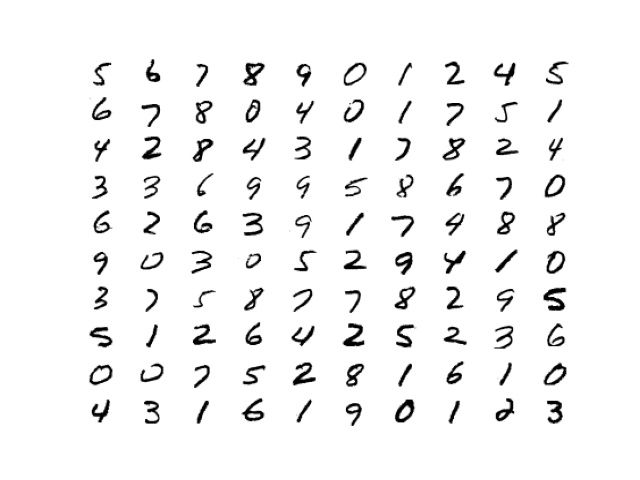 5 6 7 8 9 0 1 2 4 5
6 7 8 0 4 0 1 7 5 1
4 2 8 4 3 1 7 8 2 4
3 3 6 9 9 5 8 6 7 0
6 2 6 3 9 1 7 4 8 8
9 0 3 0 5 2 9 4 1 0
3 7 5 8 7 7 8 2 9 5
5 1 2 6 4 2 5 2 3 6
0 0 7 5 2 8 1 6 1 0
4 3 1 6 1 9 0 1 2 3